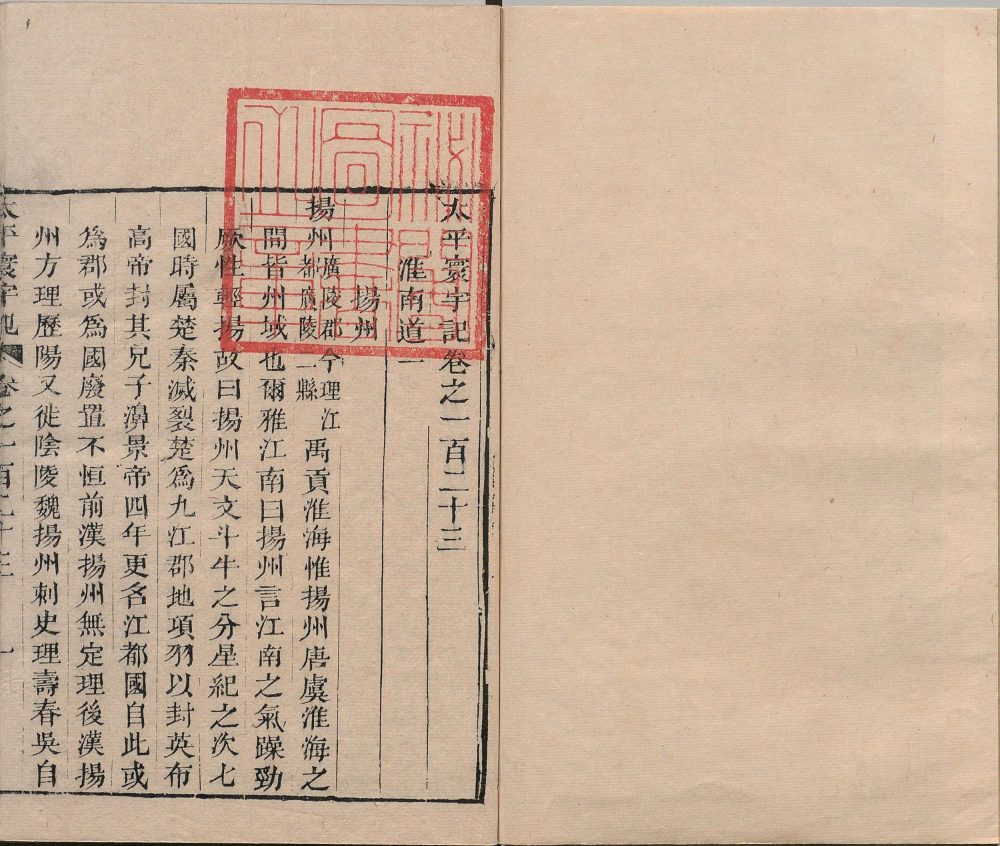 太平寰宇記卷之一百二十三
淮南道一
揚州
揚州廣陵郡今理江都廣陵二縣禹貢淮海惟揚州唐虞淮海之
間皆州域也爾雅江南曰揚州言江南之氣躁勁
厥性輕揚故曰揚州天文斗牛之分星紀之次七
國時屬楚秦滅裂楚爲九江郡地項羽以封英布
高帝封其兄子濞景帝四年更名江都國自此或
爲郡或爲國廢置不恒前漢揚州無定理後漢揚
州方理歷陽又徙陰陵魏揚州刺史理壽春吳自
太平寰宇記 卷之一百二十三 一